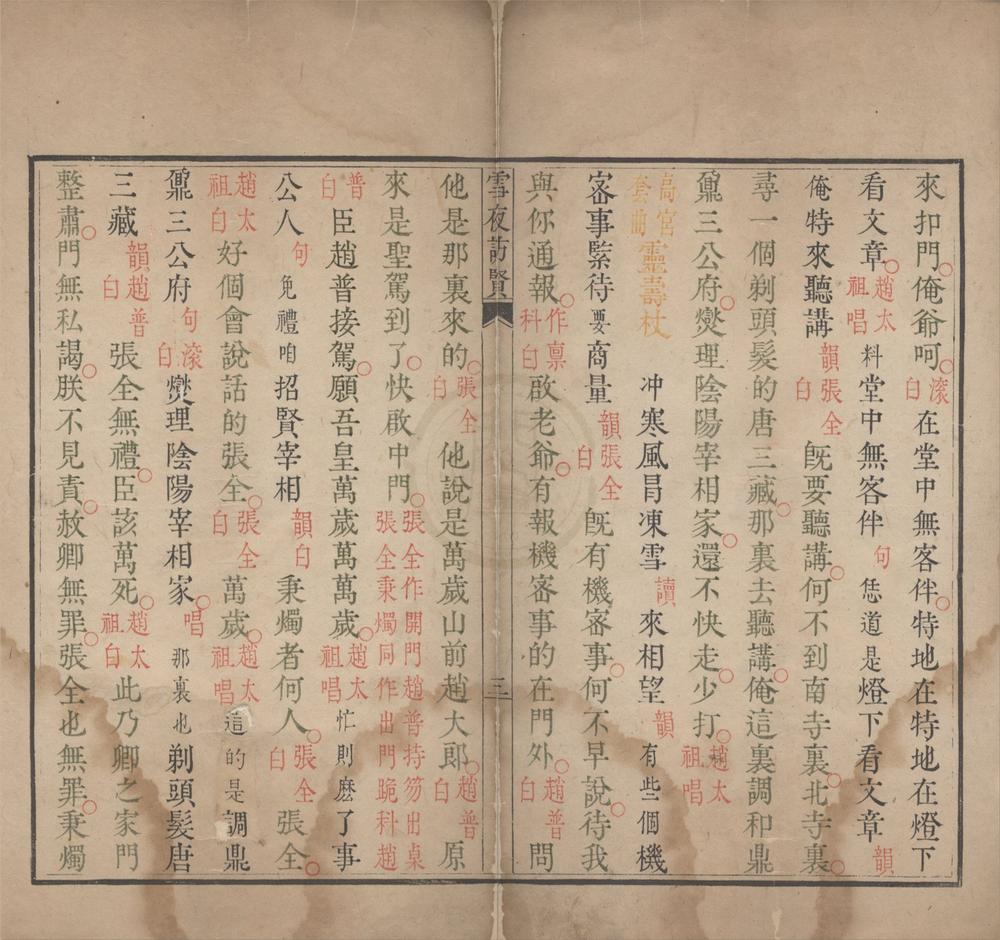 來扣門俺爺呵滚白在堂中無客伴特地在特地在燈下
看文章趙太祖唱料堂中無客伴句恁道是燈下看文章韻
俺特來聽講韻張全白旣要聽講何不到南寺裏北寺裏
尋一個剃頭髮的唐三藏那裏去聽講俺這裏調和鼎
鼐三公府爕理陰陽宰相家還不快走少打趙太祖唱
高宮套曲靈壽杖冲寒風冐凍雪讀來相望韻有些個機
宻事緊待要商量韻張全白旣有機宻事何不早說待我
與你通報作禀科白啟老爺有報機宻事的在門外趙普白問
雪夜訪賢
三
他是那裏來的張全白他說是萬歲山前趙大郎趙普白原
來是聖駕到了快啟中門張全作開門趙普持笏出桌張全秉燭同作出門跪科趙
普白臣趙普接駕願吾皇萬歲萬萬歲趙太祖唱忙則麽了事
公人句免禮咱招賢宰相韻白秉燭者何人張全白張全
趙太祖白好個會說話的張全張全白萬歲趙太祖唱這的是調鼎
鼐三公府句滚白爕理陰陽宰相家唱那裏也剃頭髮唐
三藏韻趙普白張全無禮臣該萬死趙太祖白此乃卿之家門
整肅門無私謁朕不見責赦卿無罪張全也無罪秉燭